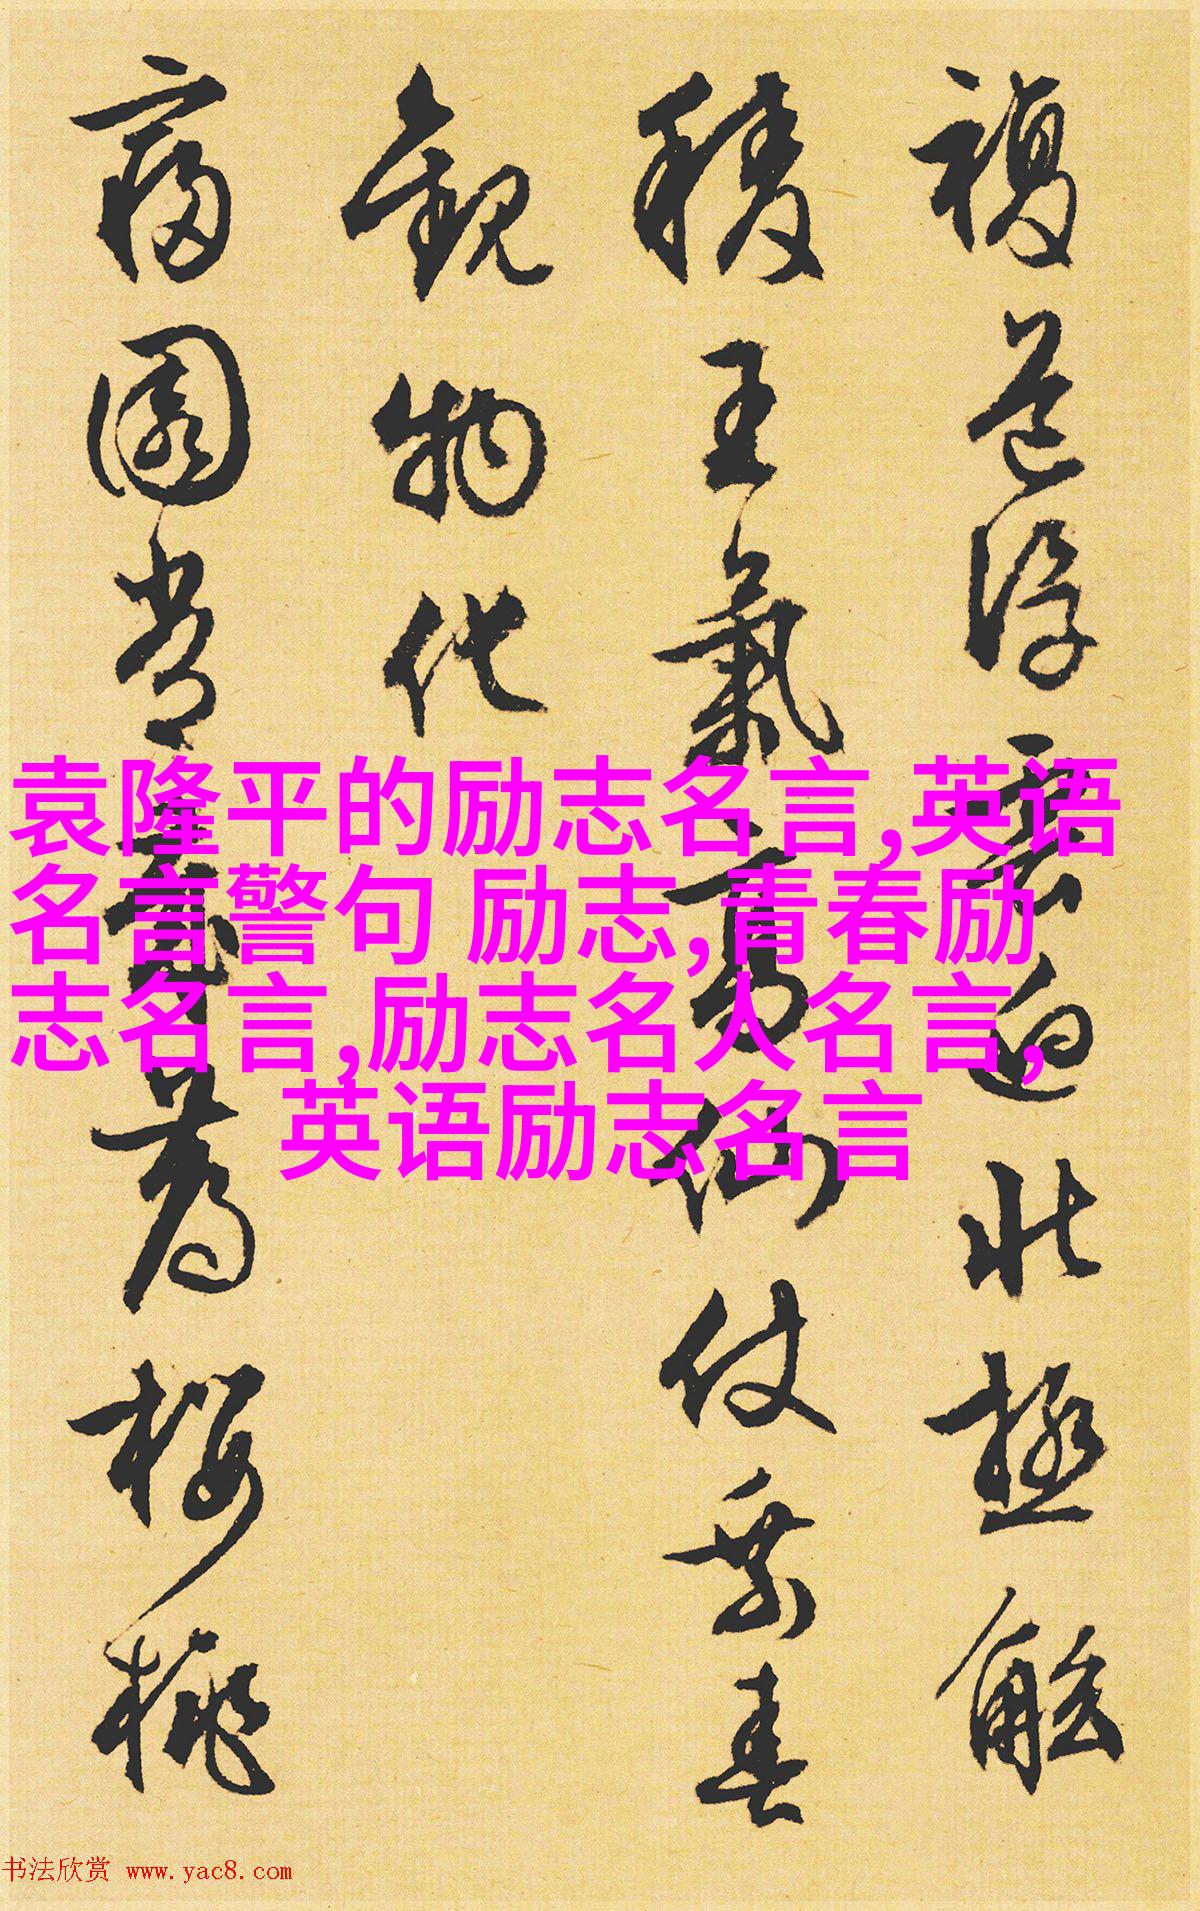 複道浮雲北極觚
稜王氣高仙仗乘春
觀物代
園常薦櫻桃
袁隆平的励志名言,英语
名言警句 励志,青春励
志名言,励志名人名言,
英语励志名言
书法欣赏 www.yac8.com